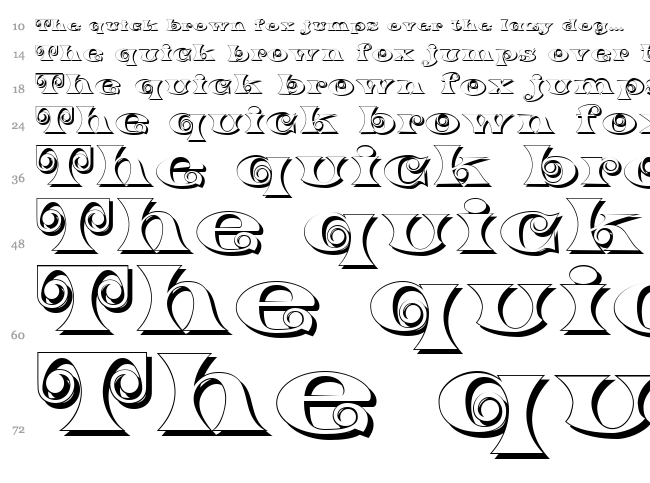 10 The quick brown fox jumps over the lazy dog...
14 The quick brown fox jumps over t
18 The quick brown fox jumps
24 The quick brown fox
36 The quick bro
48 The quick
60 The quic
72 The qu